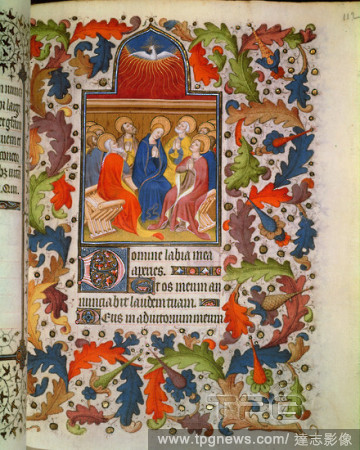 Domine labia mea
aperies.
Et os meum an
nunciabit laudem tuam.
Deus in adiutorium meum
www.tpgnews.com/ 達志影像